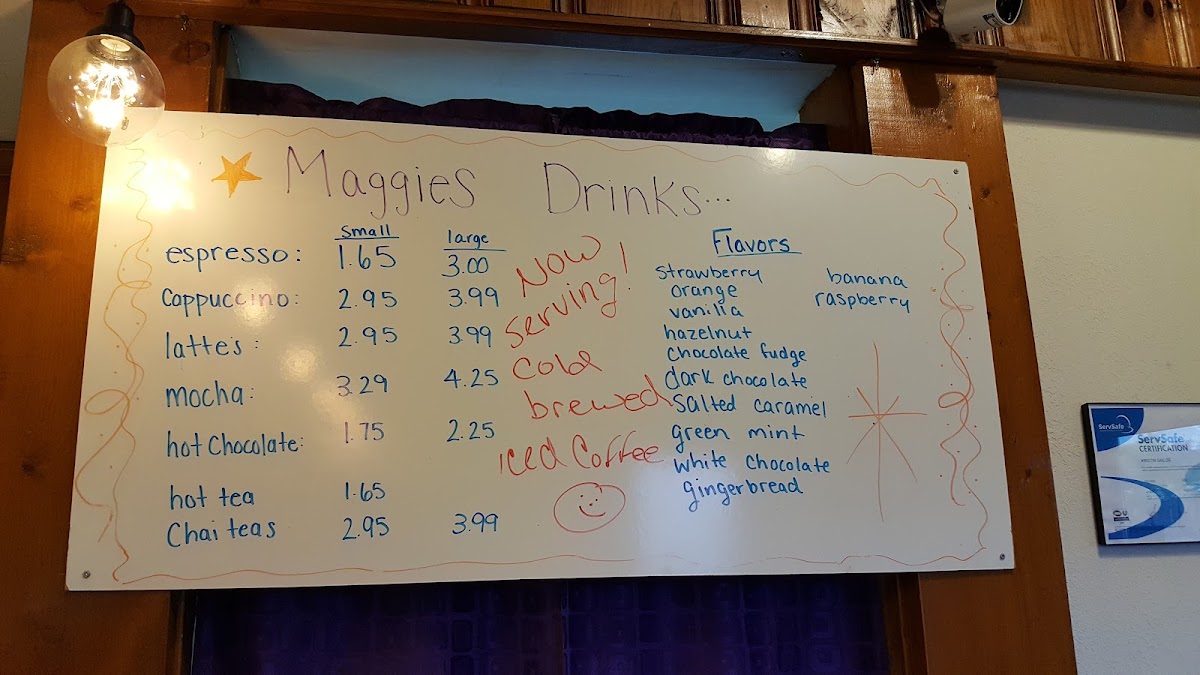 Maggies Drinks...
small large
espresso: 1.65 3.00
Cappuccino: 2.95 3.99
latte's: 2.95 3.99
mocha: 3.29 4.25
hot Chocolate: 1.75 2.25
hot tea 1.65
Chai teas 2.95 3.99
Now
serving!
cold
brewed
iced Coffee
Flavors
strawberry
orange
vanilla
hazelnut
chocolate fudge
dark chocolate
salted caramel
green mint
white chocolate
gingerbread
banana
raspberry
ServSafe
ServSafe
CERTIFICATION